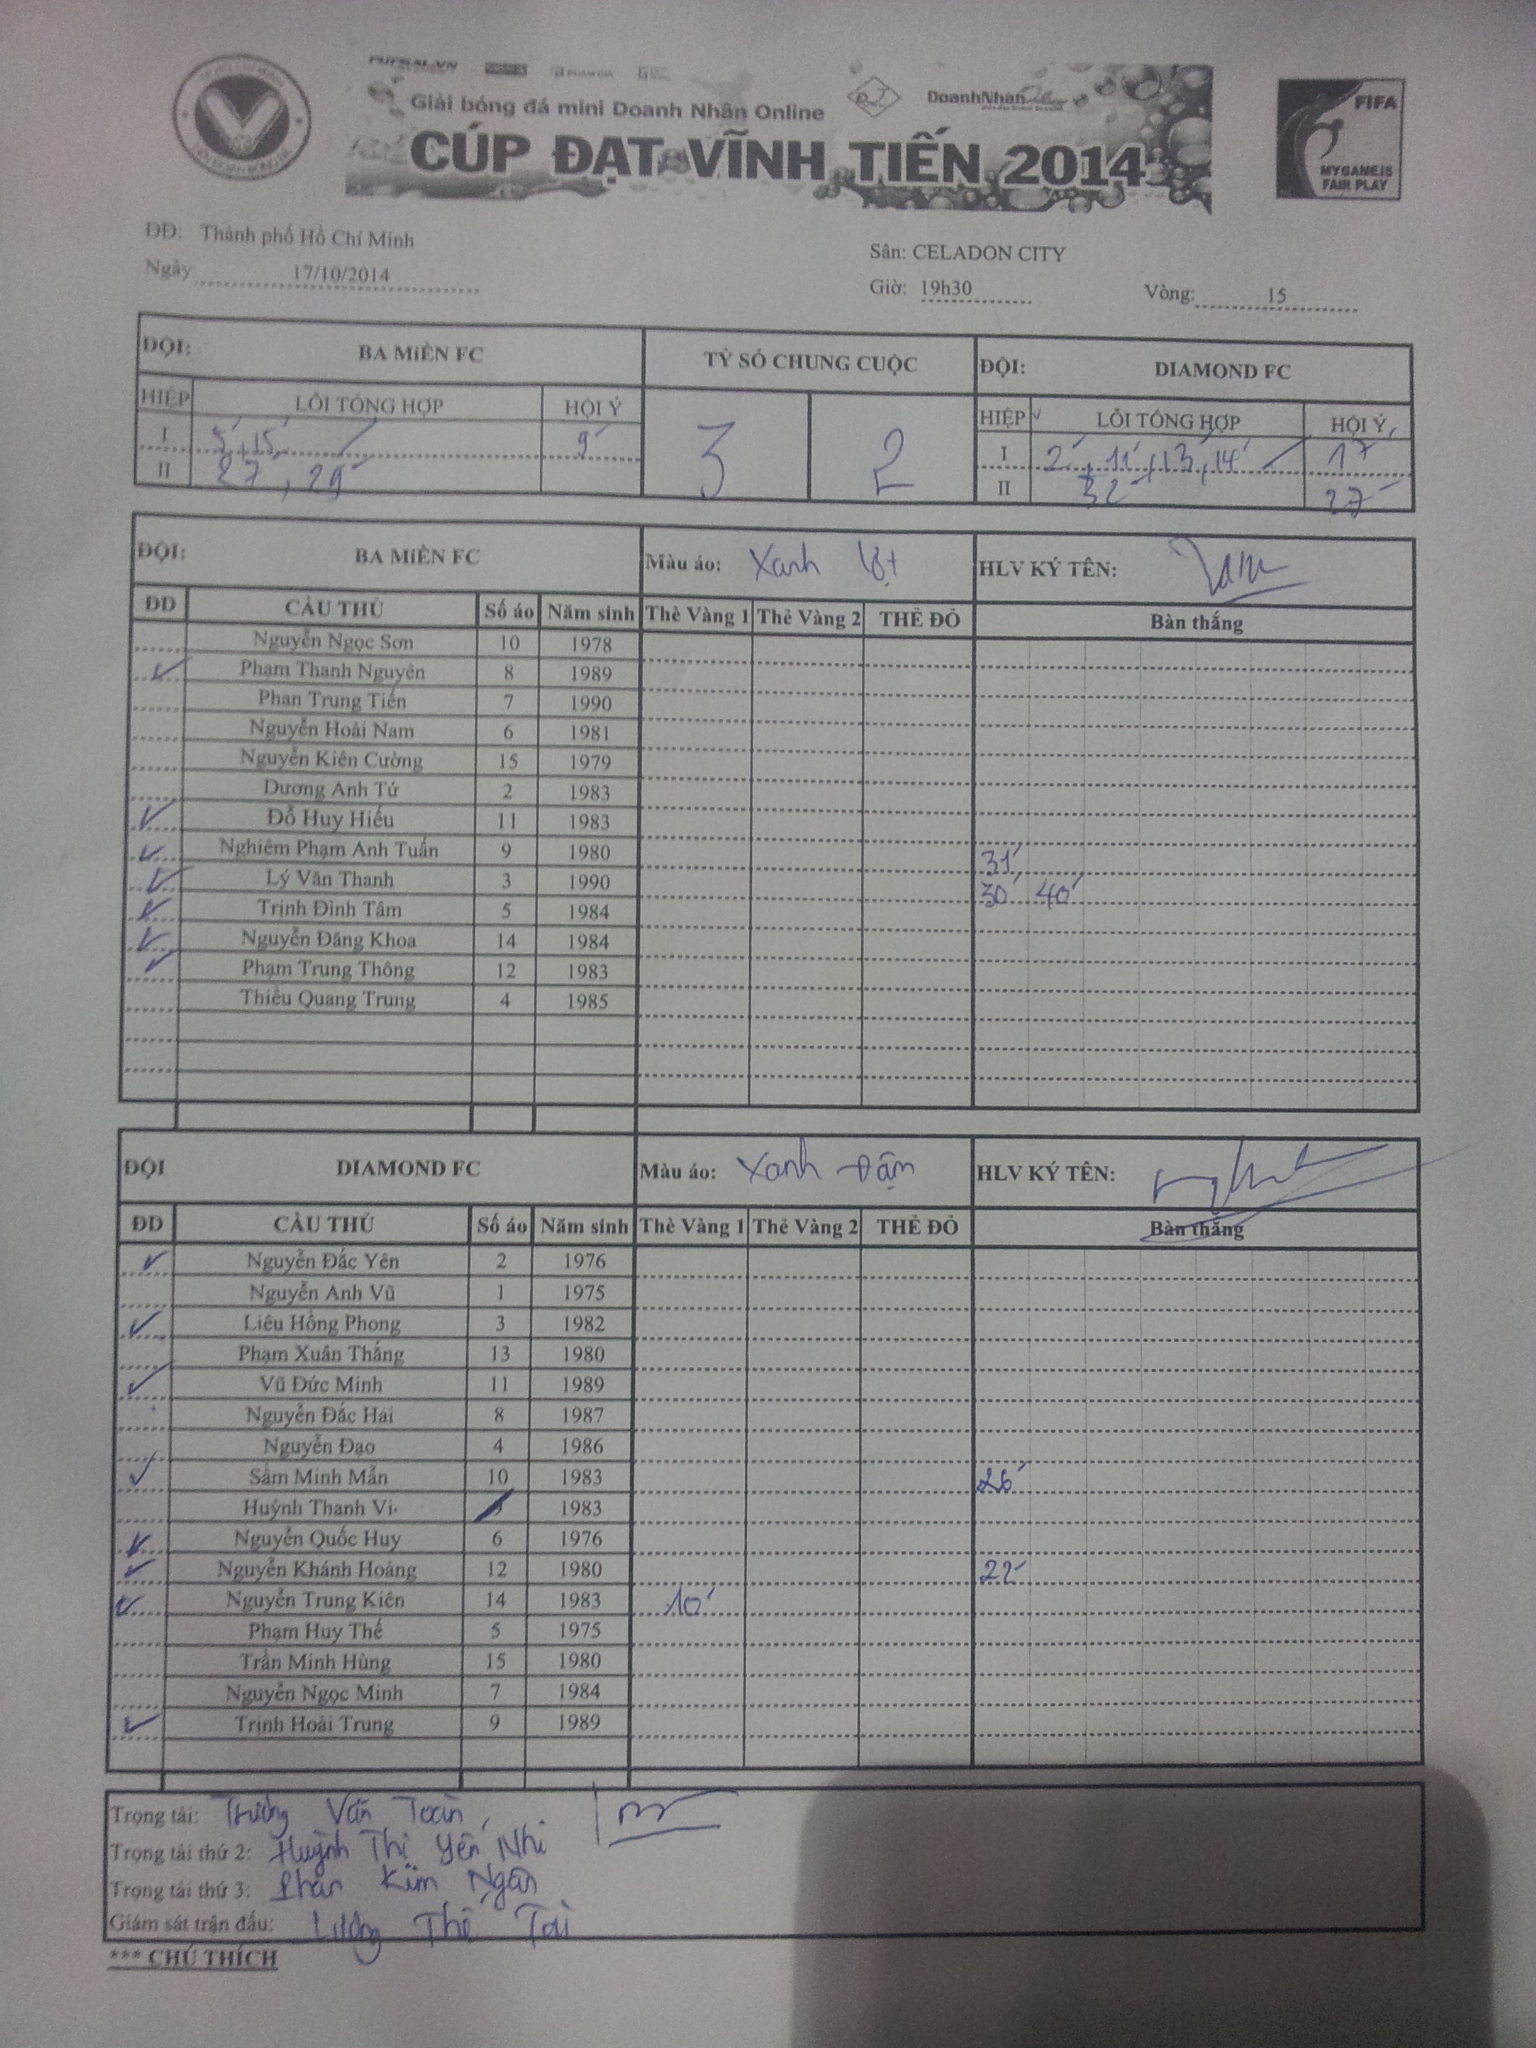 FUTSAL.VN
Giải bóng đá mini Doanh Nhân Online
DoanhNhan
CÚP ĐẠT VĨNH TIẾN 2014
FIFA
MY GAME IS
FAIR PLAY
ĐĐ: Thành phố Hồ Chí Minh
Sân: CELADON CITY
Ngày 17/10/2014
Giờ: 19h30 Vòng: 15
ĐỘI: BA MiỀN FC TỶ SỐ CHUNG CUỘC ĐỘI: DIAMOND FC
HIỆP LỖI TỔNG HỢP HỘI Ý 3 2 HIỆP LỖI TỔNG HỢP HỘI Ý
I 5', 15' 9' I 2', 11', 13', 14' 17'
II 27', 29' II 32' 27'
ĐỘI: BA MiỀN FC Màu áo: Xanh lợt HLV KÝ TÊN:
ĐD CẦU THỦ Số áo Năm sinh Thẻ Vàng 1 Thẻ Vàng 2 THẺ ĐỎ Bàn thắng
Nguyễn Ngọc Sơn 10 1978
Phạm Thanh Nguyên 8 1989
Phan Trung Tiến 7 1990
Nguyễn Hoài Nam 6 1981
Nguyễn Kiên Cường 15 1979
Dương Anh Tứ 2 1983
Đỗ Huy Hiếu 11 1983
Nghiêm Phạm Anh Tuấn 9 1980 31'
Lý Văn Thanh 3 1990 30' 40'
Trịnh Đình Tâm 5 1984
Nguyễn Đăng Khoa 14 1984
Phạm Trung Thông 12 1983
Thiều Quang Trung 4 1985
ĐỘI DIAMOND FC Màu áo: Xanh Đậm HLV KÝ TÊN:
ĐD CẦU THỦ Số áo Năm sinh Thẻ Vàng 1 Thẻ Vàng 2 THẺ ĐỎ Bàn thắng
Nguyễn Đắc Yên 2 1976
Nguyễn Anh Vũ 1 1975
Liêu Hồng Phong 3 1982
Phạm Xuân Thắng 13 1980
Vũ Đức Minh 11 1989
Nguyễn Đắc Hải 8 1987
Nguyễn Đạo 4 1986
Sầm Minh Mẫn 10 1983 26'
Huỳnh Thanh Vi 1983
Nguyễn Quốc Huy 6 1976
Nguyễn Khánh Hoàng 12 1980 22'
Nguyễn Trung Kiên 14 1983 10'
Phạm Huy Thế 5 1975
Trần Minh Hùng 15 1980
Nguyễn Ngọc Minh 7 1984
Trịnh Hoài Trung 9 1989
Trọng tài: Trương Văn Toàn
Trọng tài thứ 2: Huỳnh Thị Yến Nhi
Trọng tài thứ 3: Phan Kim Ngân
Giám sát trận đấu: Lương Thế Tài
*** CHÚ THÍCH